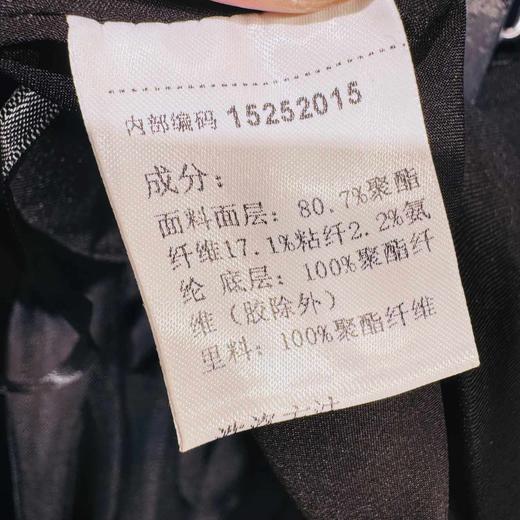 内部编码 15252015
成分：
面料面层：80.7%聚酯
纤维17.1%粘纤2.2%氨
纶 底层：100%聚酯纤
维（胶除外）
里料：100%聚酯纤维